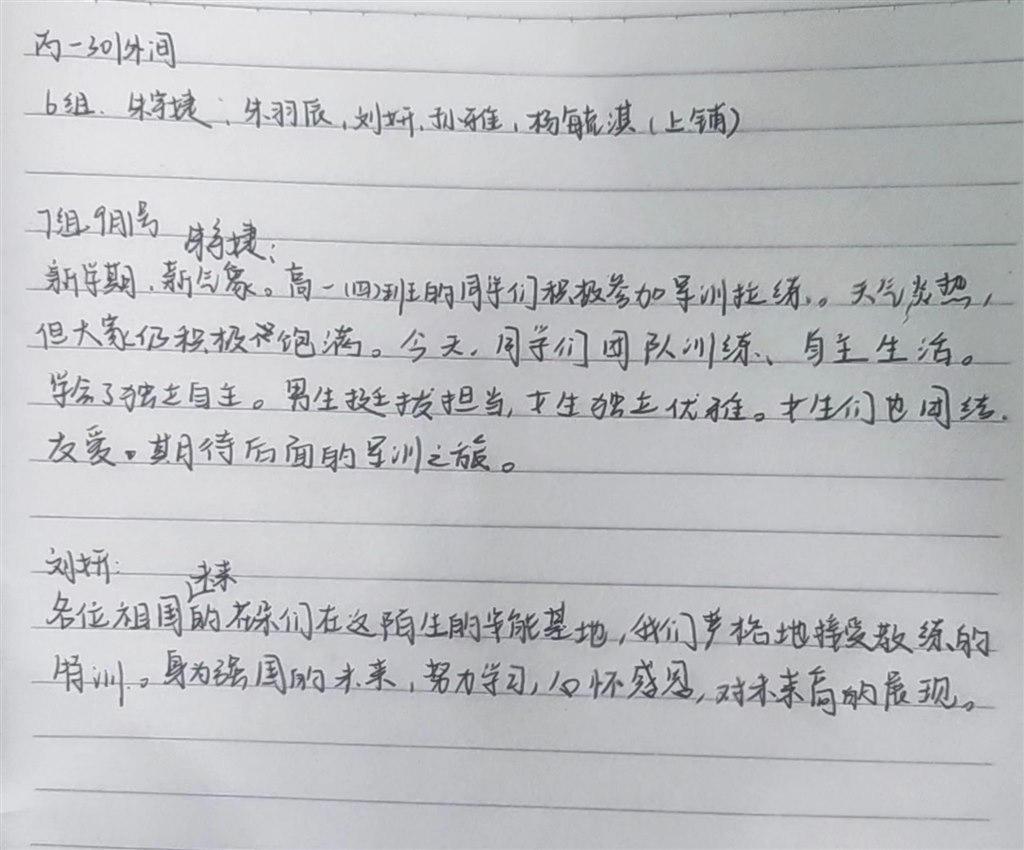 丙一301外间
6组. 朱宇婕, 朱羽辰, 刘妍, 孙雅, 杨毓淇(上铺)
7组 9月1号
朱宇婕:
新学期, 新气象。高一(四)班的同学们积极参加军训拉练。天气炎热,
但大家仍积极饱满。今天, 同学们团队训练、自主生活。
学会了独立自主。男生挺拔担当, 女生独立优雅。女生们也团结
友爱。期待后面的军训之旅。
刘妍:
未来
各位祖国的花朵们在这陌生的学能基地, 我们严格地接受教练的
特训。身为强国的未来, 努力学习, 心怀感恩, 对未来有的展现。